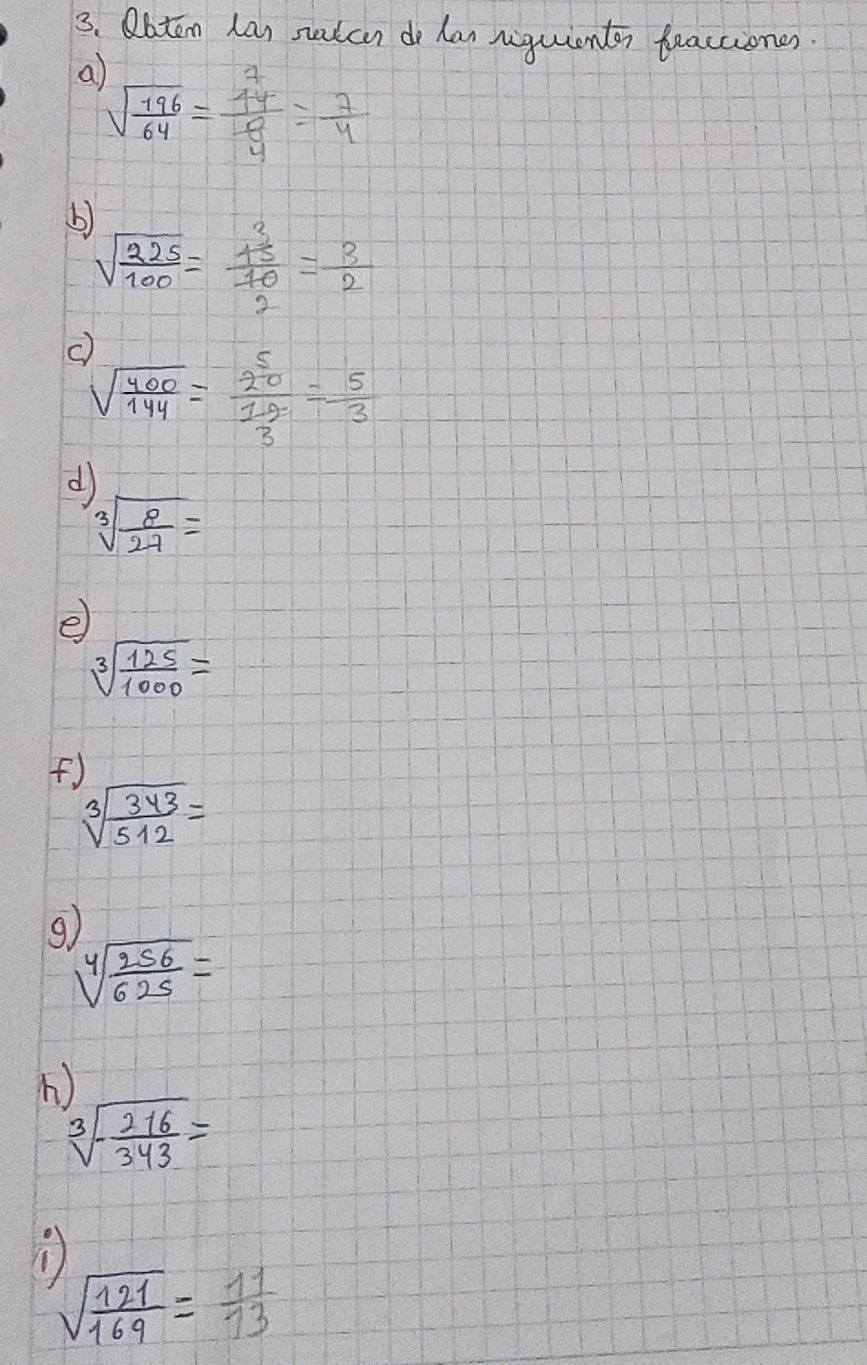 3. Obten las raíces de las siguientes fracciones.
a) √(196/64) = 14/8 = 7/4
7
4
b) √(225/100) = 15/10 = 3/2
3
2
c) √(400/144) = 20/12 = 5/3
5
3
d) ∛(8/27) =
e) ∛(125/1000) =
f) ∛(343/512) =
g) ∜(256/625) =
h) ∛(-216/343) =
i) √(121/169) = 11/13